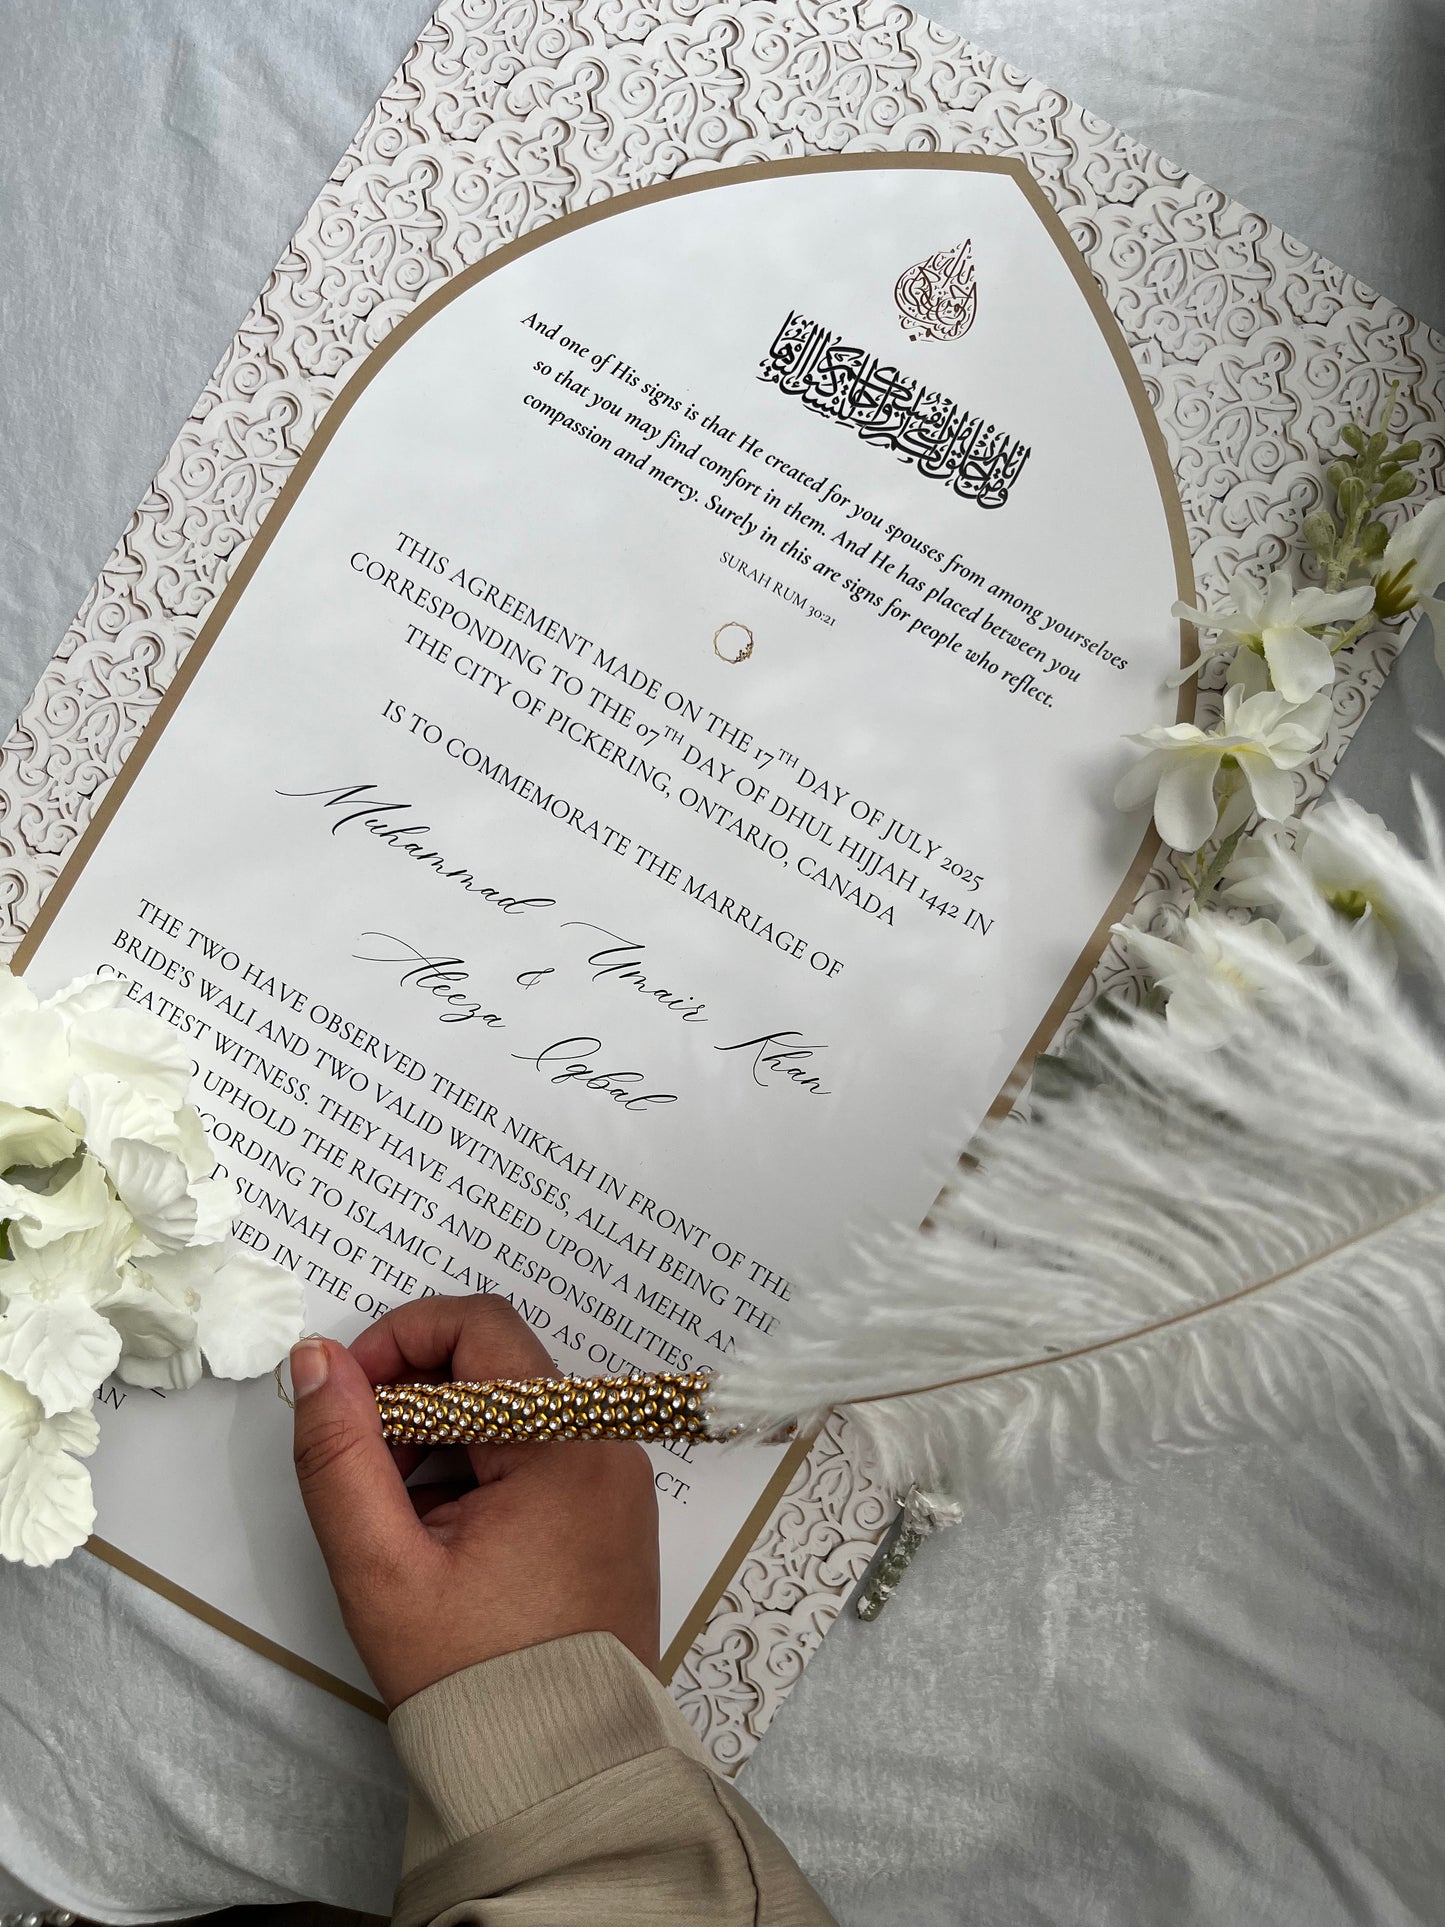 ومن آياته أن خلق لكم من أنفسكم أزواجا لتسكنوا إليها
And one of His signs is that He created for you spouses from among yourselves
so that you may find comfort in them. And He has placed between you
compassion and mercy. Surely in this are signs for people who reflect.
SURAH RUM 30:21
THIS AGREEMENT MADE ON THE 17TH DAY OF JULY 2025
CORRESPONDING TO THE 07TH DAY OF DHUL HIJJAH 1442 IN
THE CITY OF PICKERING, ONTARIO, CANADA
IS TO COMMEMORATE THE MARRIAGE OF
Muhammad Umair Khan
&
Aleeza Iqbal
THE TWO HAVE OBSERVED THEIR NIKKAH IN FRONT OF THE
BRIDE'S WALI AND TWO VALID WITNESSES, ALLAH BEING THE
GREATEST WITNESS. THEY HAVE AGREED UPON A MEHR
UPHOLD THE RIGHTS AND RESPONSIBILITIES
ACCORDING TO ISLAMIC LAW AND AS
SUNNAH OF THE
IN THE